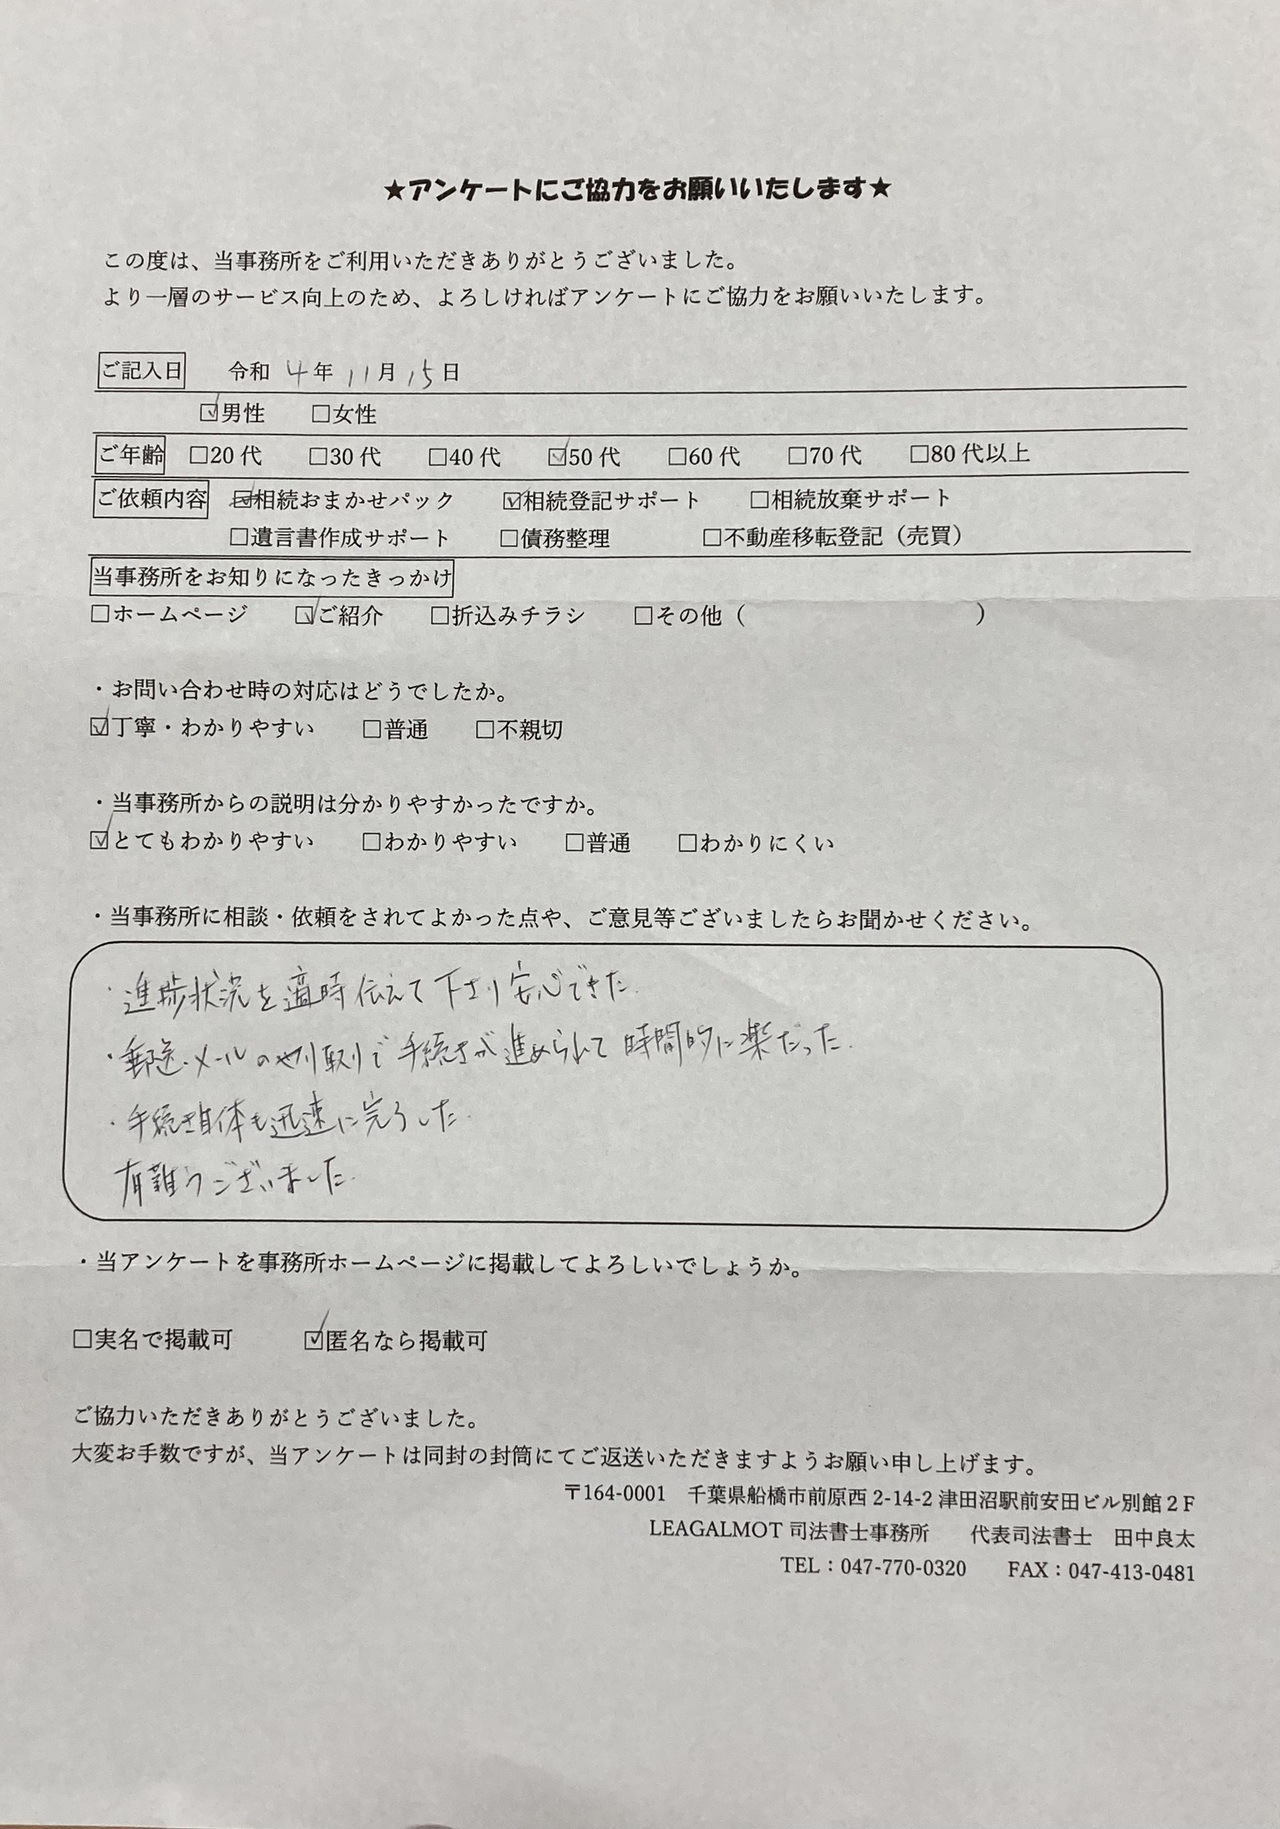 ★アンケートにご協力をお願いいたします★
この度は、当事務所をご利用いただきありがとうございました。
より一層のサービス向上のため、よろしければアンケートにご協力をお願いいたします。
ご記入日 令和 4年 11月 15日
☑男性 □女性
ご年齢 □20代 □30代 □40代 ☑50代 □60代 □70代 □80代以上
ご依頼内容 ☑相続おまかせパック ☑相続登記サポート □相続放棄サポート
□遺言書作成サポート □債務整理 □不動産移転登記（売買）
当事務所をお知りになったきっかけ
□ホームページ ☑ご紹介 □折込みチラシ □その他（ ）
・お問い合わせ時の対応はどうでしたか。
☑丁寧・わかりやすい □普通 □不親切
・当事務所からの説明は分かりやすかったですか。
☑とてもわかりやすい □わかりやすい □普通 □わかりにくい
・当事務所に相談・依頼をされてよかった点や、ご意見等ございましたらお聞かせください。
・進捗状況を適時伝えて下さり安心できた.
・郵送・メールのやり取りで手続きが進められて時間的に楽だった.
・手続き自体も迅速に完了した.
有難うございました.
・当アンケートを事務所ホームページに掲載してよろしいでしょうか。
□実名で掲載可 ☑匿名なら掲載可
ご協力いただきありがとうございました。
大変お手数ですが、当アンケートは同封の封筒にてご返送いただきますようお願い申し上げます。
〒164-0001 千葉県船橋市前原西2-14-2津田沼駅前安田ビル別館２F
LEAGALMOT司法書士事務所 代表司法書士 田中良太
TEL：047-770-0320 FAX：047-413-0481